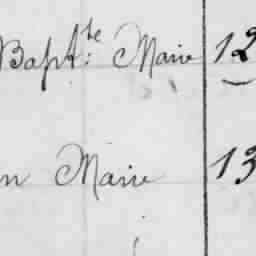 Bapt.te Marie 12
n Marie 13